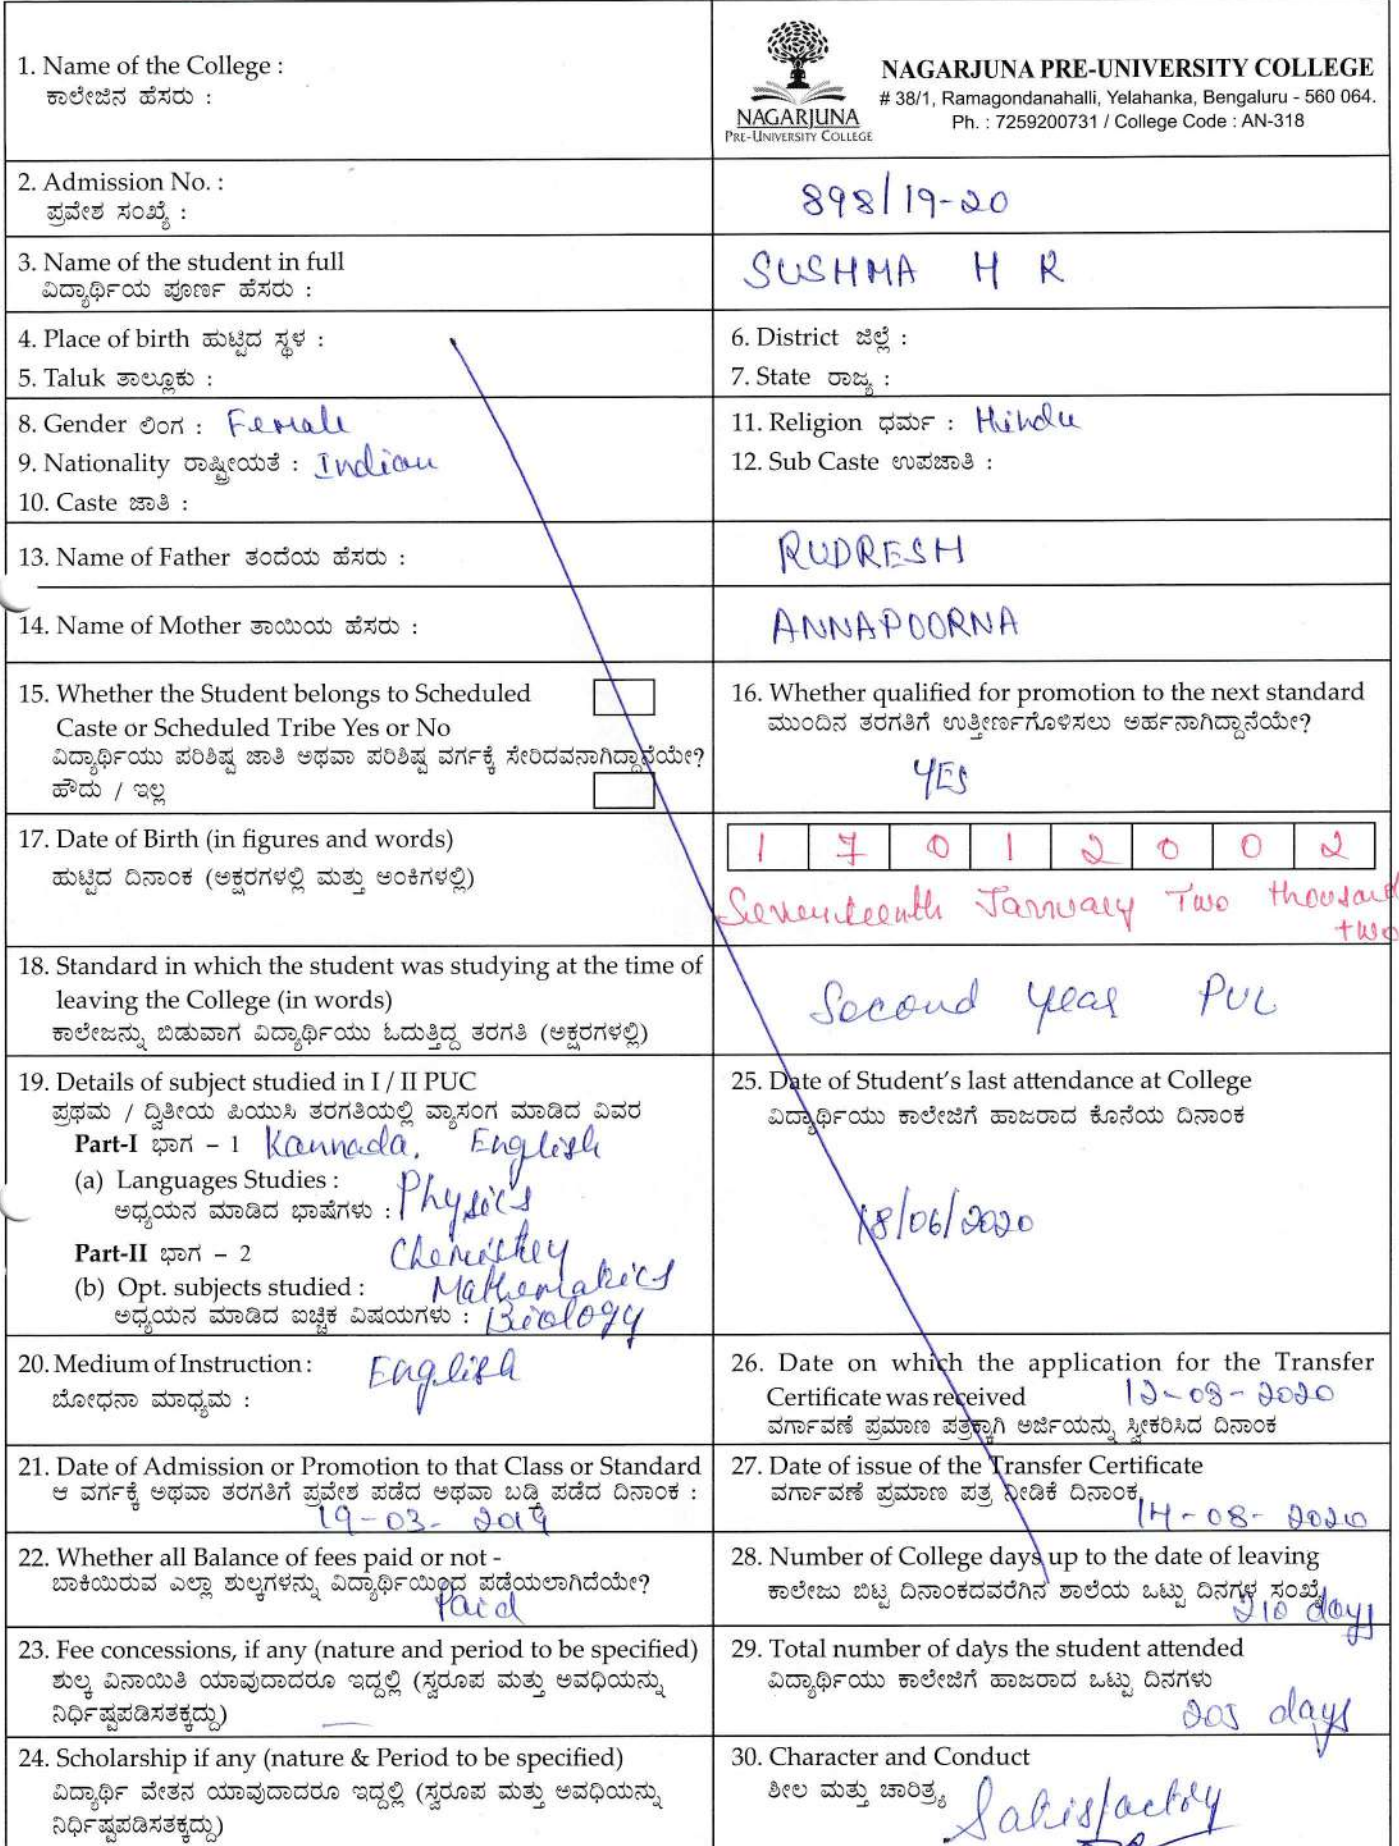 1. Name of the College :
ಕಾಲೇಜಿನ ಹೆಸರು :
NAGARJUNA
PRE-UNIVERSITY COLLEGE
NAGARJUNA PRE-UNIVERSITY COLLEGE
# 38/1, Ramagondanahalli, Yelahanka, Bengaluru - 560 064.
Ph. : 7259200731 / College Code : AN-318
2. Admission No. :
ಪ್ರವೇಶ ಸಂಖ್ಯೆ :
898/19-20
3. Name of the student in full
ವಿದ್ಯಾರ್ಥಿಯ ಪೂರ್ಣ ಹೆಸರು :
SUSHMA H R
4. Place of birth ಹುಟ್ಟಿದ ಸ್ಥಳ :
5. Taluk ತಾಲ್ಲೂಕು :
6. District ಜಿಲ್ಲೆ :
7. State ರಾಜ್ಯ :
8. Gender ಲಿಂಗ : Female
9. Nationality ರಾಷ್ಟ್ರೀಯತೆ : Indian
10. Caste ಜಾತಿ :
11. Religion ಧರ್ಮ : Hindu
12. Sub Caste ಉಪಜಾತಿ :
13. Name of Father ತಂದೆಯ ಹೆಸರು :
RUDRESH
14. Name of Mother ತಾಯಿಯ ಹೆಸರು :
ANNAPOORNA
15. Whether the Student belongs to Scheduled
Caste or Scheduled Tribe Yes or No
ವಿದ್ಯಾರ್ಥಿಯು ಪರಿಶಿಷ್ಟ ಜಾತಿ ಅಥವಾ ಪರಿಶಿಷ್ಟ ವರ್ಗಕ್ಕೆ ಸೇರಿದವನಾಗಿದ್ದಾನೆಯೇ?
ಹೌದು / ಇಲ್ಲ
16. Whether qualified for promotion to the next standard
ಮುಂದಿನ ತರಗತಿಗೆ ಉತ್ತೀರ್ಣಗೊಳಿಸಲು ಅರ್ಹನಾಗಿದ್ದಾನೆಯೇ?
YES
17. Date of Birth (in figures and words)
ಹುಟ್ಟಿದ ದಿನಾಂಕ (ಅಕ್ಷರಗಳಲ್ಲಿ ಮತ್ತು ಅಂಕಿಗಳಲ್ಲಿ)
1 7 0 1 2 0 0 2
Seventeenth January Two thousand
two
18. Standard in which the student was studying at the time of
leaving the College (in words)
ಕಾಲೇಜನ್ನು ಬಿಡುವಾಗ ವಿದ್ಯಾರ್ಥಿಯು ಓದುತ್ತಿದ್ದ ತರಗತಿ (ಅಕ್ಷರಗಳಲ್ಲಿ)
Second year PUC
19. Details of subject studied in I / II PUC
ಪ್ರಥಮ / ದ್ವಿತೀಯ ಪಿಯುಸಿ ತರಗತಿಯಲ್ಲಿ ವ್ಯಾಸಂಗ ಮಾಡಿದ ವಿವರ
Part-I ಭಾಗ – 1 Kannada, English
(a) Languages Studies :
ಅಧ್ಯಯನ ಮಾಡಿದ ಭಾಷೆಗಳು : Physics
Part-II ಭಾಗ – 2 Chemistry
(b) Opt. subjects studied : Mathematics
ಅಧ್ಯಯನ ಮಾಡಿದ ಐಚ್ಛಿಕ ವಿಷಯಗಳು : Biology
25. Date of Student's last attendance at College
ವಿದ್ಯಾರ್ಥಿಯು ಕಾಲೇಜಿಗೆ ಹಾಜರಾದ ಕೊನೆಯ ದಿನಾಂಕ
18/06/2020
20. Medium of Instruction : English
ಬೋಧನಾ ಮಾಧ್ಯಮ :
26. Date on which the application for the Transfer
Certificate was received 12-08-2020
ವರ್ಗಾವಣೆ ಪ್ರಮಾಣ ಪತ್ರಕ್ಕಾಗಿ ಅರ್ಜಿಯನ್ನು ಸ್ವೀಕರಿಸಿದ ದಿನಾಂಕ
21. Date of Admission or Promotion to that Class or Standard
ಆ ವರ್ಗಕ್ಕೆ ಅಥವಾ ತರಗತಿಗೆ ಪ್ರವೇಶ ಪಡೆದ ಅಥವಾ ಬಡ್ತಿ ಪಡೆದ ದಿನಾಂಕ :
19-03-2019
27. Date of issue of the Transfer Certificate
ವರ್ಗಾವಣೆ ಪ್ರಮಾಣ ಪತ್ರ ನೀಡಿಕೆ ದಿನಾಂಕ
14-08-2020
22. Whether all Balance of fees paid or not -
ಬಾಕಿಯಿರುವ ಎಲ್ಲಾ ಶುಲ್ಕಗಳನ್ನು ವಿದ್ಯಾರ್ಥಿಯಿಂದ ಪಡೆಯಲಾಗಿದೆಯೇ?
Paid
28. Number of College days up to the date of leaving
ಕಾಲೇಜು ಬಿಟ್ಟ ದಿನಾಂಕದವರೆಗಿನ ಶಾಲೆಯ ಒಟ್ಟು ದಿನಗಳ ಸಂಖ್ಯೆ
210 days
23. Fee concessions, if any (nature and period to be specified)
ಶುಲ್ಕ ವಿನಾಯಿತಿ ಯಾವುದಾದರೂ ಇದ್ದಲ್ಲಿ (ಸ್ವರೂಪ ಮತ್ತು ಅವಧಿಯನ್ನು
ನಿರ್ಧಿಷ್ಟಪಡಿಸತಕ್ಕದ್ದು) —
29. Total number of days the student attended
ವಿದ್ಯಾರ್ಥಿಯು ಕಾಲೇಜಿಗೆ ಹಾಜರಾದ ಒಟ್ಟು ದಿನಗಳು
205 days
24. Scholarship if any (nature & Period to be specified)
ವಿದ್ಯಾರ್ಥಿ ವೇತನ ಯಾವುದಾದರೂ ಇದ್ದಲ್ಲಿ (ಸ್ವರೂಪ ಮತ್ತು ಅವಧಿಯನ್ನು
ನಿರ್ಧಿಷ್ಟಪಡಿಸತಕ್ಕದ್ದು)
30. Character and Conduct
ಶೀಲ ಮತ್ತು ಚಾರಿತ್ರ್ಯ
Satisfactory